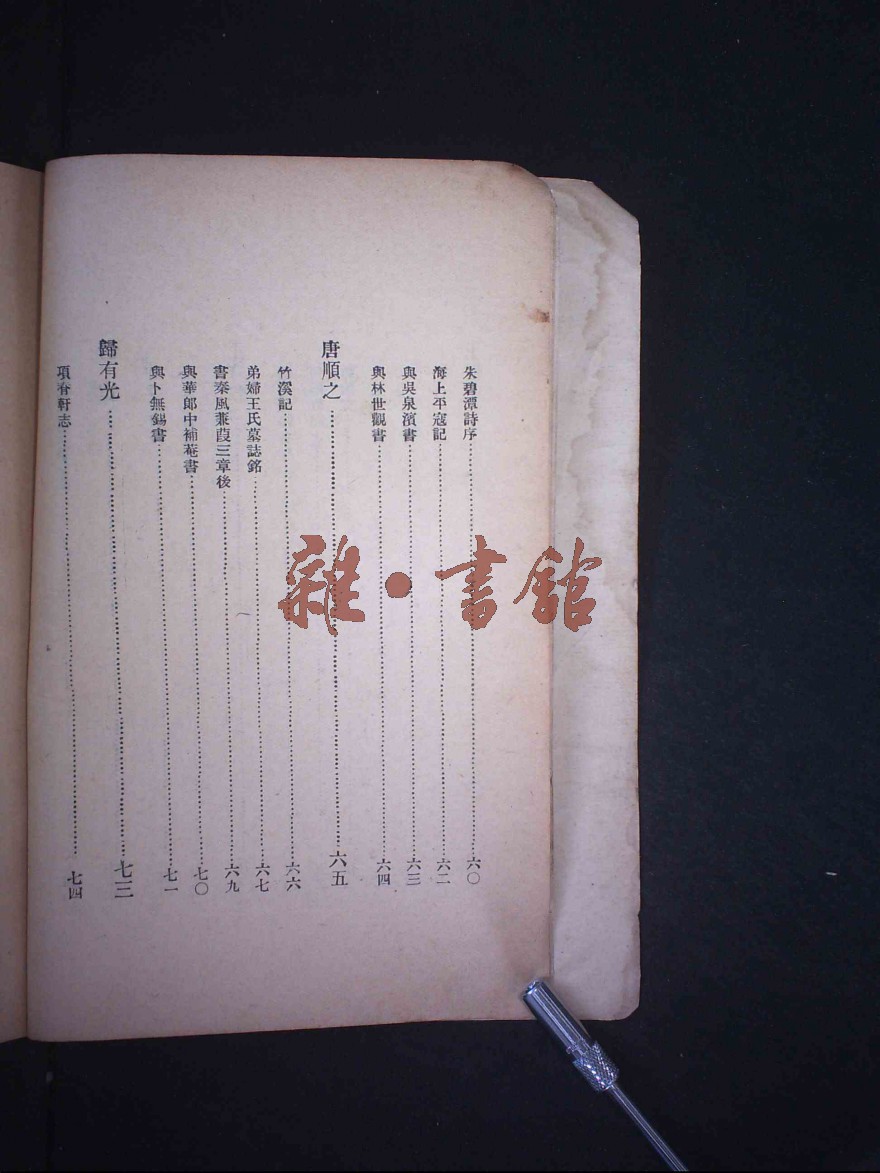 朱碧潭詩序……六〇
海上平寇記……六二
與吳泉濱書……六三
與林世觀書……六四
唐順之……六五
竹溪記……六六
弟婦王氏墓誌銘……六七
書秦風蒹葭三章後……六九
與華郎中補菴書……七〇
與卜無錫書……七一
歸有光……七三
項脊軒志……七四
雜·書館